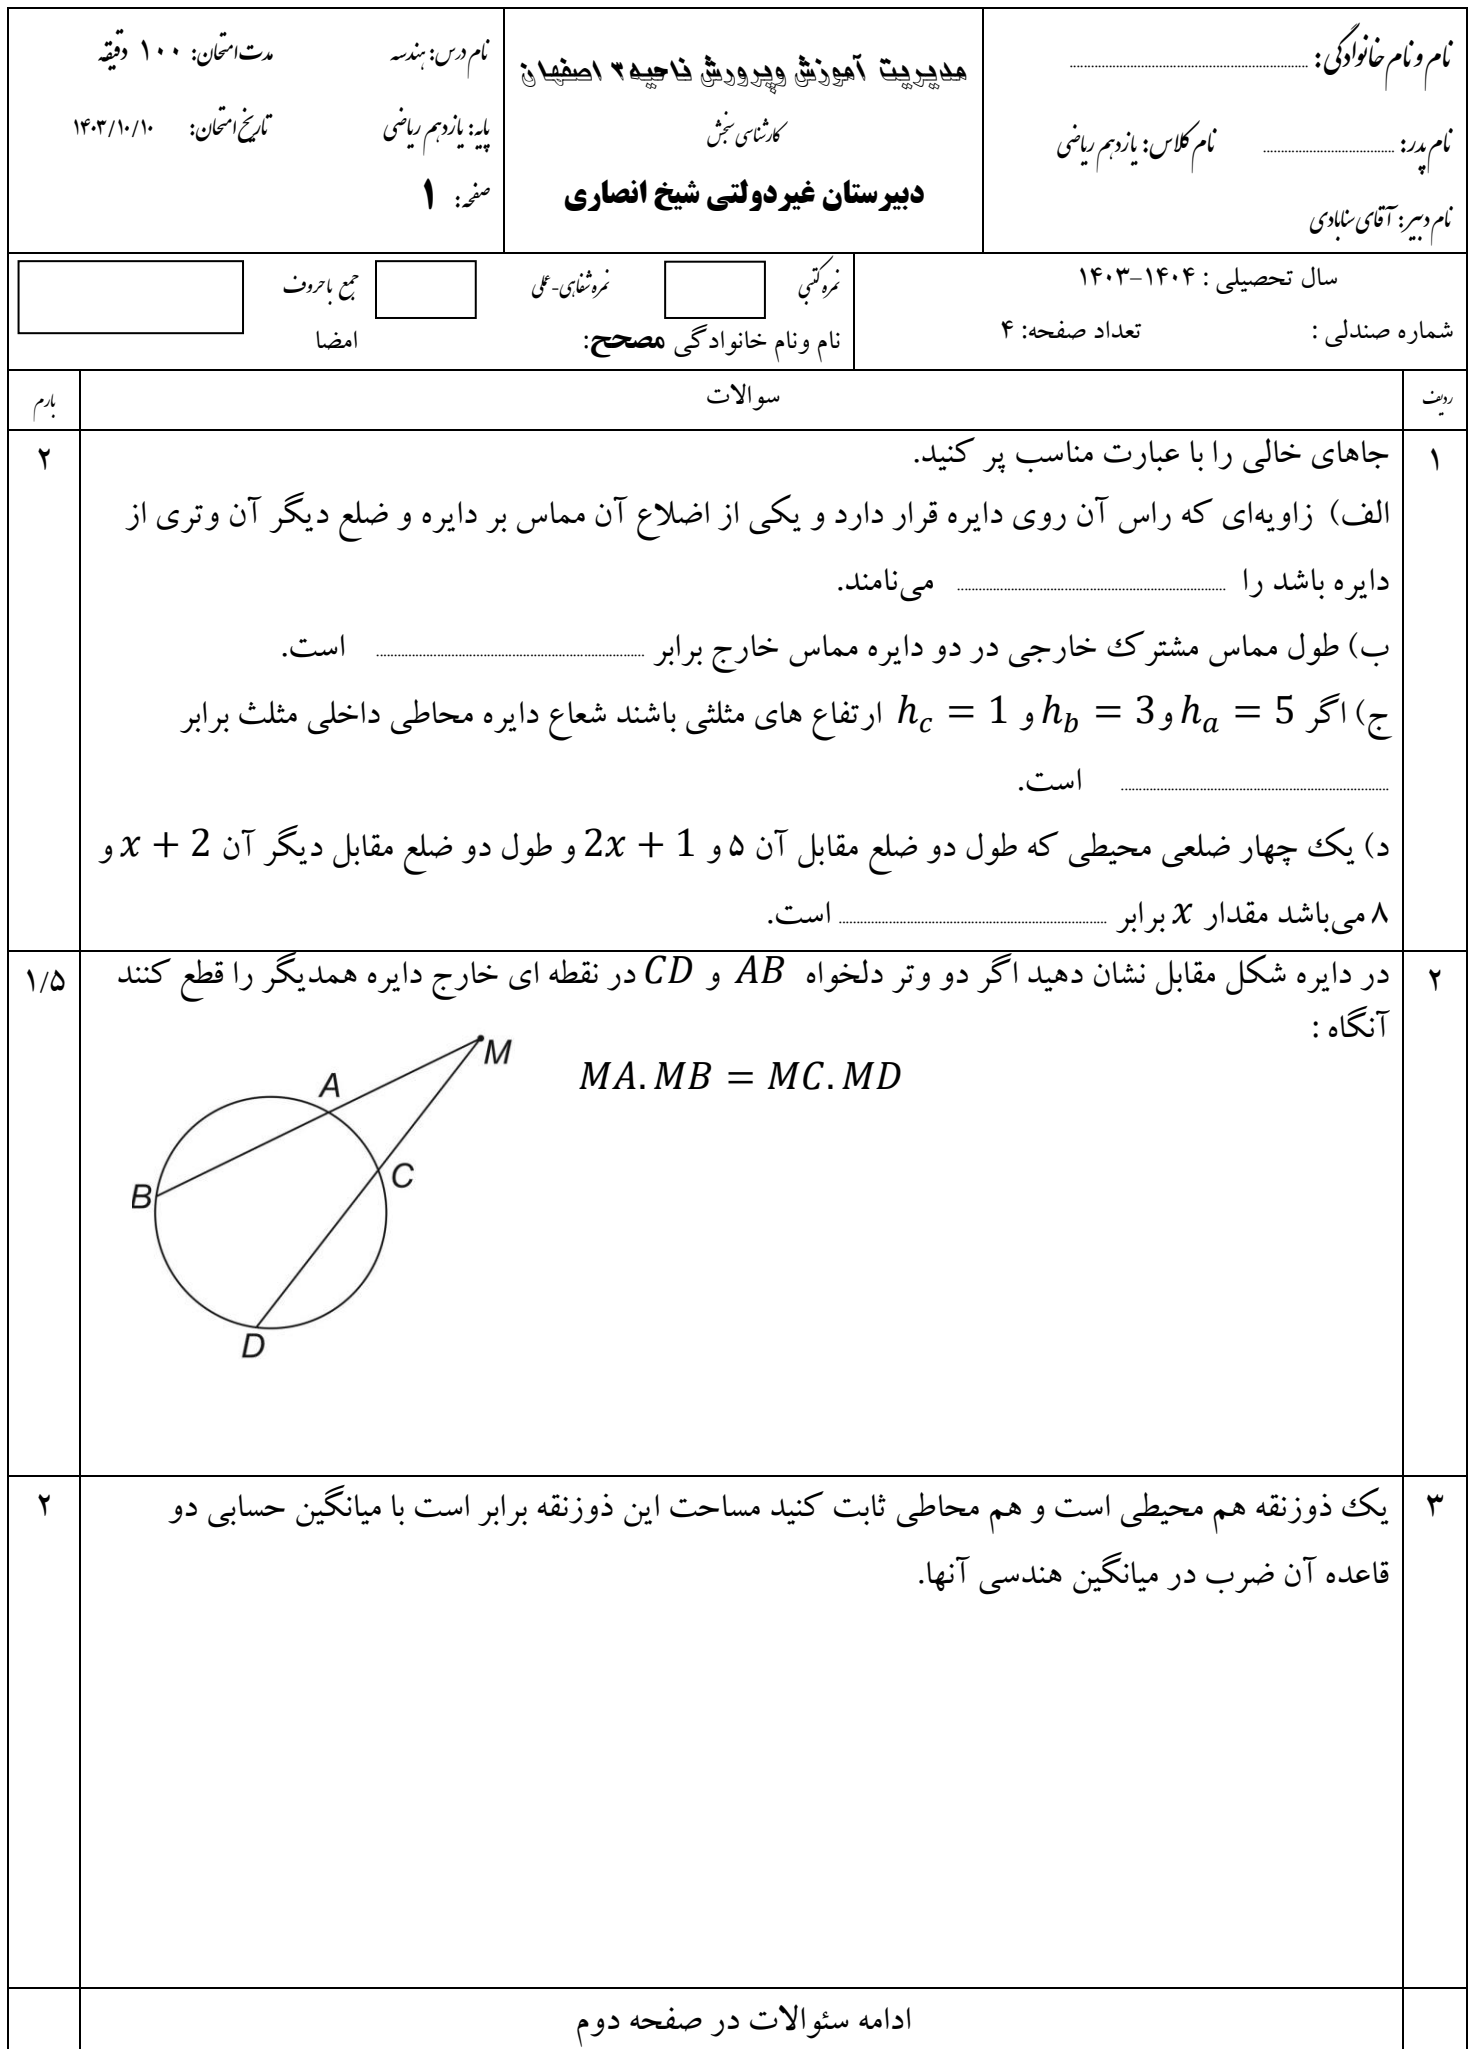 نام و نام خانوادگی:
نام پدر: نام کلاس: یازدهم ریاضی
نام دبیر: آقای سنابادی
مدیریت آموزش وپرورش ناحیه۳ اصفهان
کارشناسی سنجش
دبیرستان غیردولتی شیخ انصاری
نام درس: هندسه مدت امتحان: ۱۰۰ دقیقه
پایه: یازدهم ریاضی تاریخ امتحان: ۱۴۰۳/۱۰/۱۰
صفحه: ۱
سال تحصیلی : ۱۴۰۴-۱۴۰۳
شماره صندلی : تعداد صفحه: ۴
نمره کتبی نمره شفاهی-عملی جمع باحروف
نام ونام خانوادگی مصحح: امضا
ردیف سوالات بارم
۱ جاهای خالی را با عبارت مناسب پر کنید. ۲
الف) زاویه‌ای که راس آن روی دایره قرار دارد و یکی از اضلاع آن مماس بر دایره و ضلع دیگر آن وتری از
دایره باشد را می‌نامند.
ب) طول مماس مشترک خارجی در دو دایره مماس خارج برابر است.
ج) اگر h_a = 5 و h_b = 3 و h_c = 1 ارتفاع های مثلثی باشند شعاع دایره محاطی داخلی مثلث برابر
است.
د) یک چهار ضلعی محیطی که طول دو ضلع مقابل آن ۵ و 2x + 1 و طول دو ضلع مقابل دیگر آن x + 2 و
۸ می‌باشد مقدار x برابر است.
۲ در دایره شکل مقابل نشان دهید اگر دو وتر دلخواه AB و CD در نقطه ای خارج دایره همدیگر را قطع کنند ۱/۵
آنگاه :
MA.MB = MC.MD
M
A
C
B
D
۳ یک ذوزنقه هم محیطی است و هم محاطی ثابت کنید مساحت این ذوزنقه برابر است با میانگین حسابی دو ۲
قاعده آن ضرب در میانگین هندسی آنها.
ادامه سئوالات در صفحه دوم